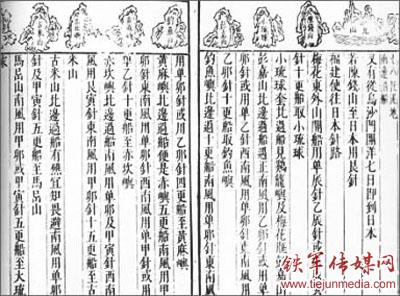 又有從烏沙門開洋七日即到日本
若陳錢山至日本用艮針
福建使往日本針路
梅花東外山開船用單辰針乙辰針或用辰巽
針十更船取小琉球
小琉球套北過船見鷄籠嶼及梅花瓶彭嘉山
彭嘉山北邊過船遇正南風用乙卯針或用單
卯針或用單乙針西南風用單卯針東南風用
乙卯針十更船取釣魚嶼
釣魚嶼北邊過十更船南風用單卯針東南風
釣魚嶼
用單卯針或用乙卯針四更船至黃麻嶼
黃麻嶼北邊過船便是赤嶼五更船南風用甲
卯針東南風用單卯針西南風用甲針或
單乙針十更船至赤坎嶼
赤坎嶼北邊過船南風用單卯及甲寅針西南
風用艮寅針東南風用甲卯針十五更船至古
米山
古米山北邊過船有礁宜知畏避南風用單卯
針及甲寅針五更船至馬岊山
馬岊山南風用甲卯或甲寅針五更船至大琉
球
铁军传媒网
www.tiejunmedia.com